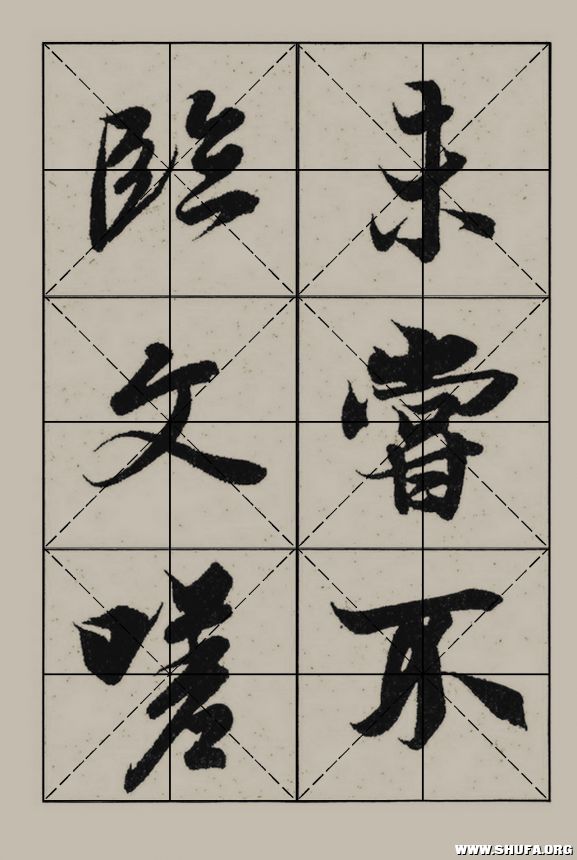 未嘗不
臨文嗟
WWW.SHUFA.ORG